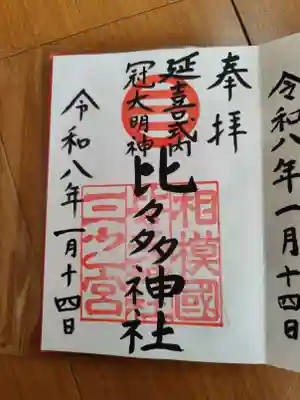 令和八年一月十四日
奉拝
延喜式内
冠大明神
比々多神社
相模國
三之宮
令和八年一月十四日